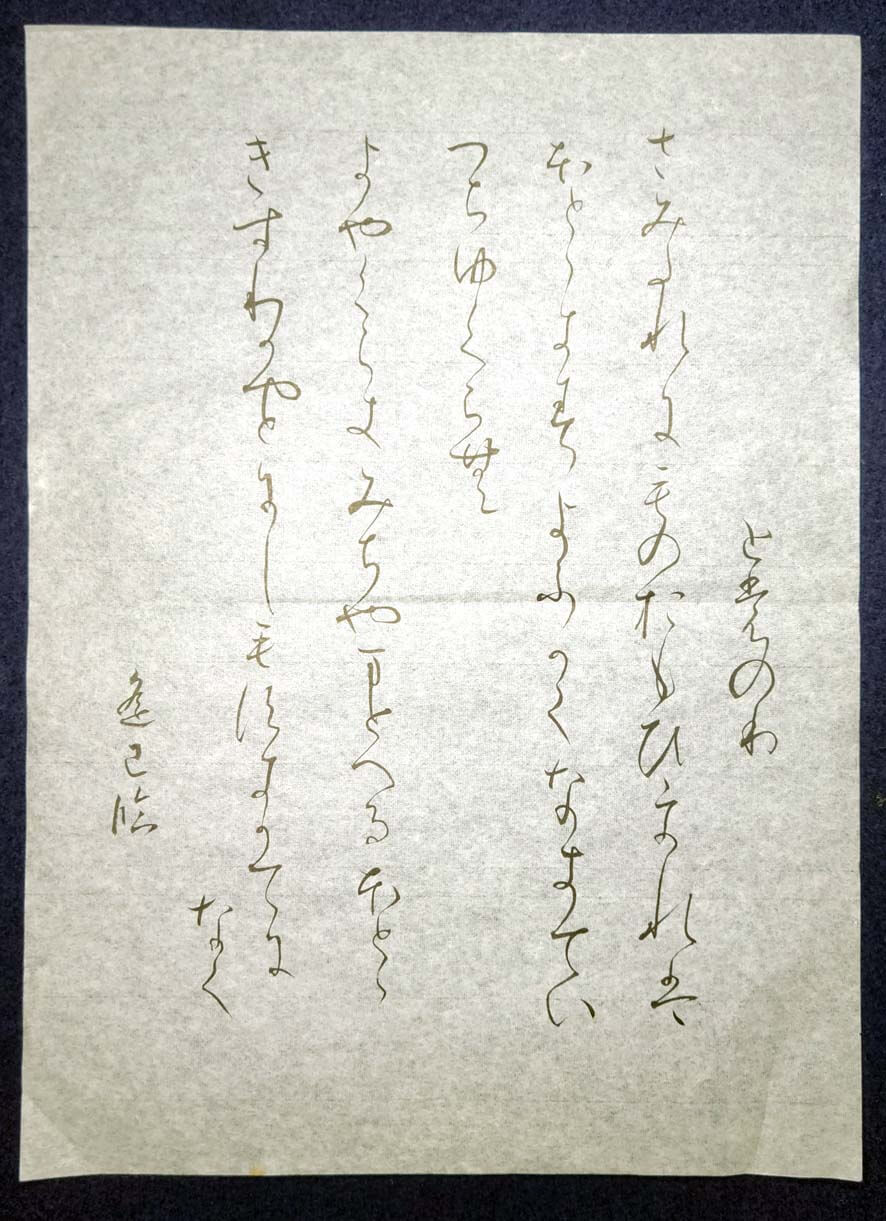 とものり
さみたれにものおもひをれは
ほとゝきすよふかくなきてい
つちゆくらむ
よやくらきみちやまとへるほとゝ
きすわかやとをしもすきかてに
なく
臨